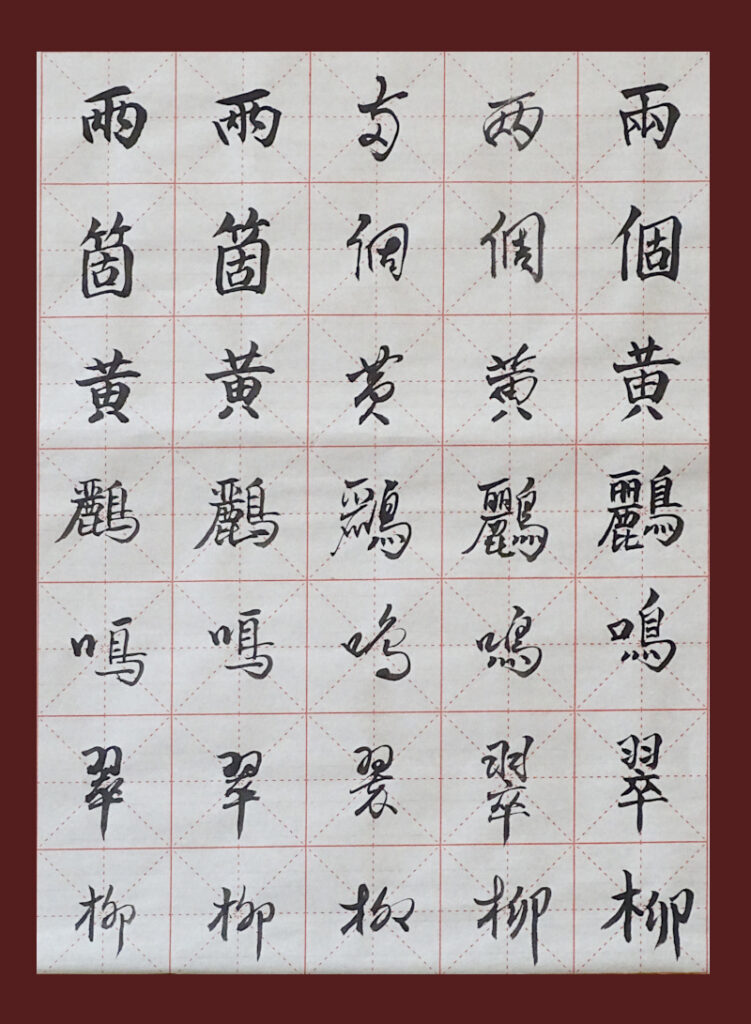 兩個黄鸝鳴翠柳
两個黄鸝鳴翠柳
两個黄鸝鳴翠柳
兩箇黄鸝鳴翠柳
兩箇黄鸝鳴翠柳